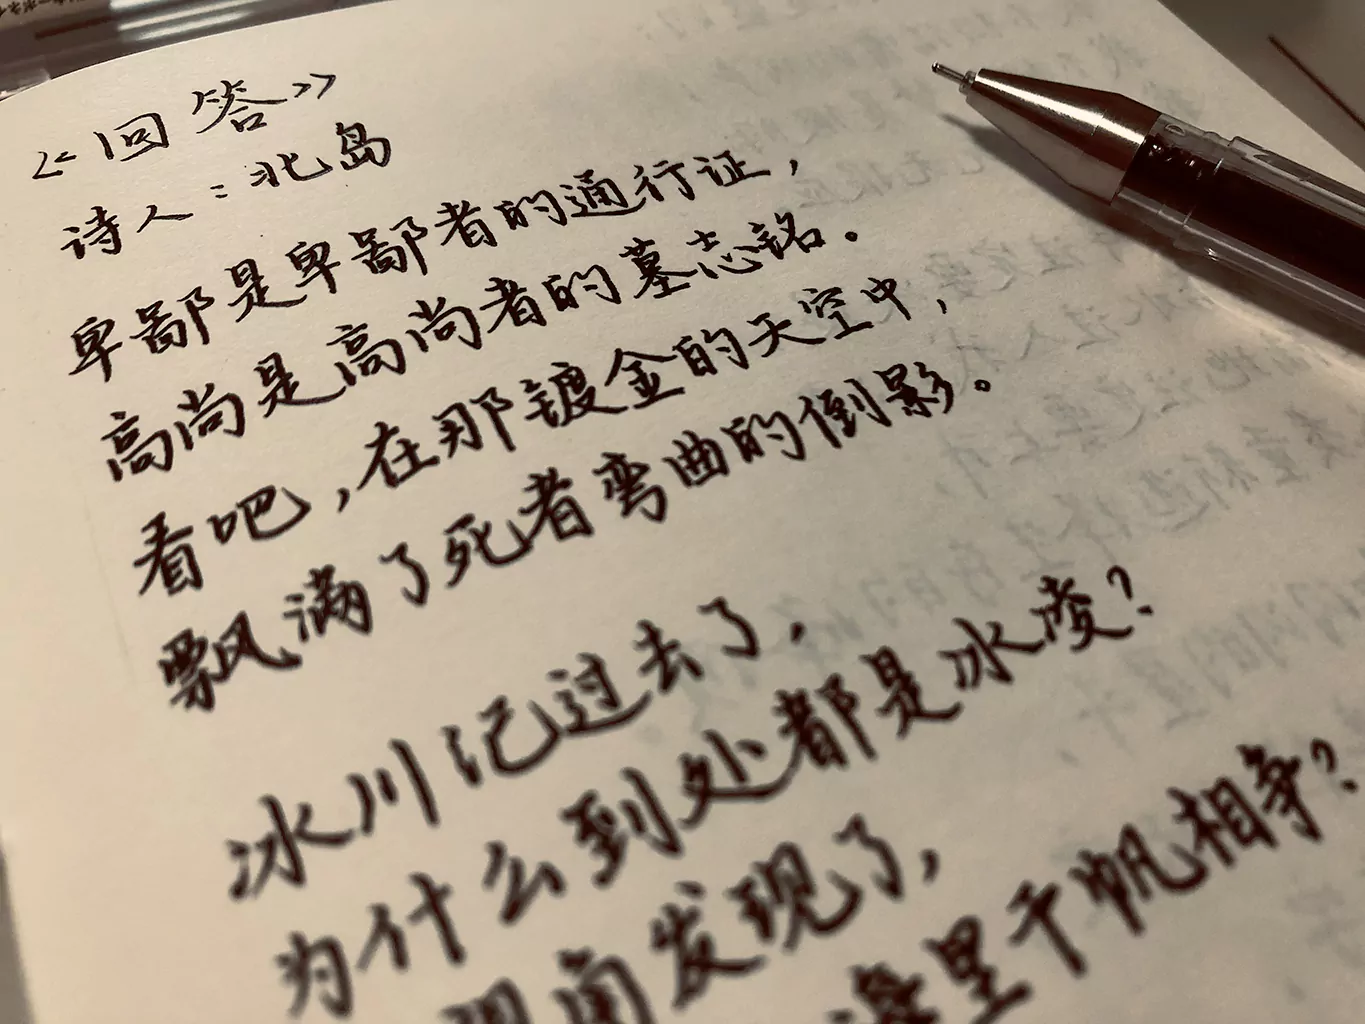 《回答》
诗人：北岛
卑鄙是卑鄙者的通行证，
高尚是高尚者的墓志铭。
看吧，在那镀金的天空中，
飘满了死者弯曲的倒影。
冰川纪过去了，
为什么到处都是冰凌？
角发现了，
里千帆相争？